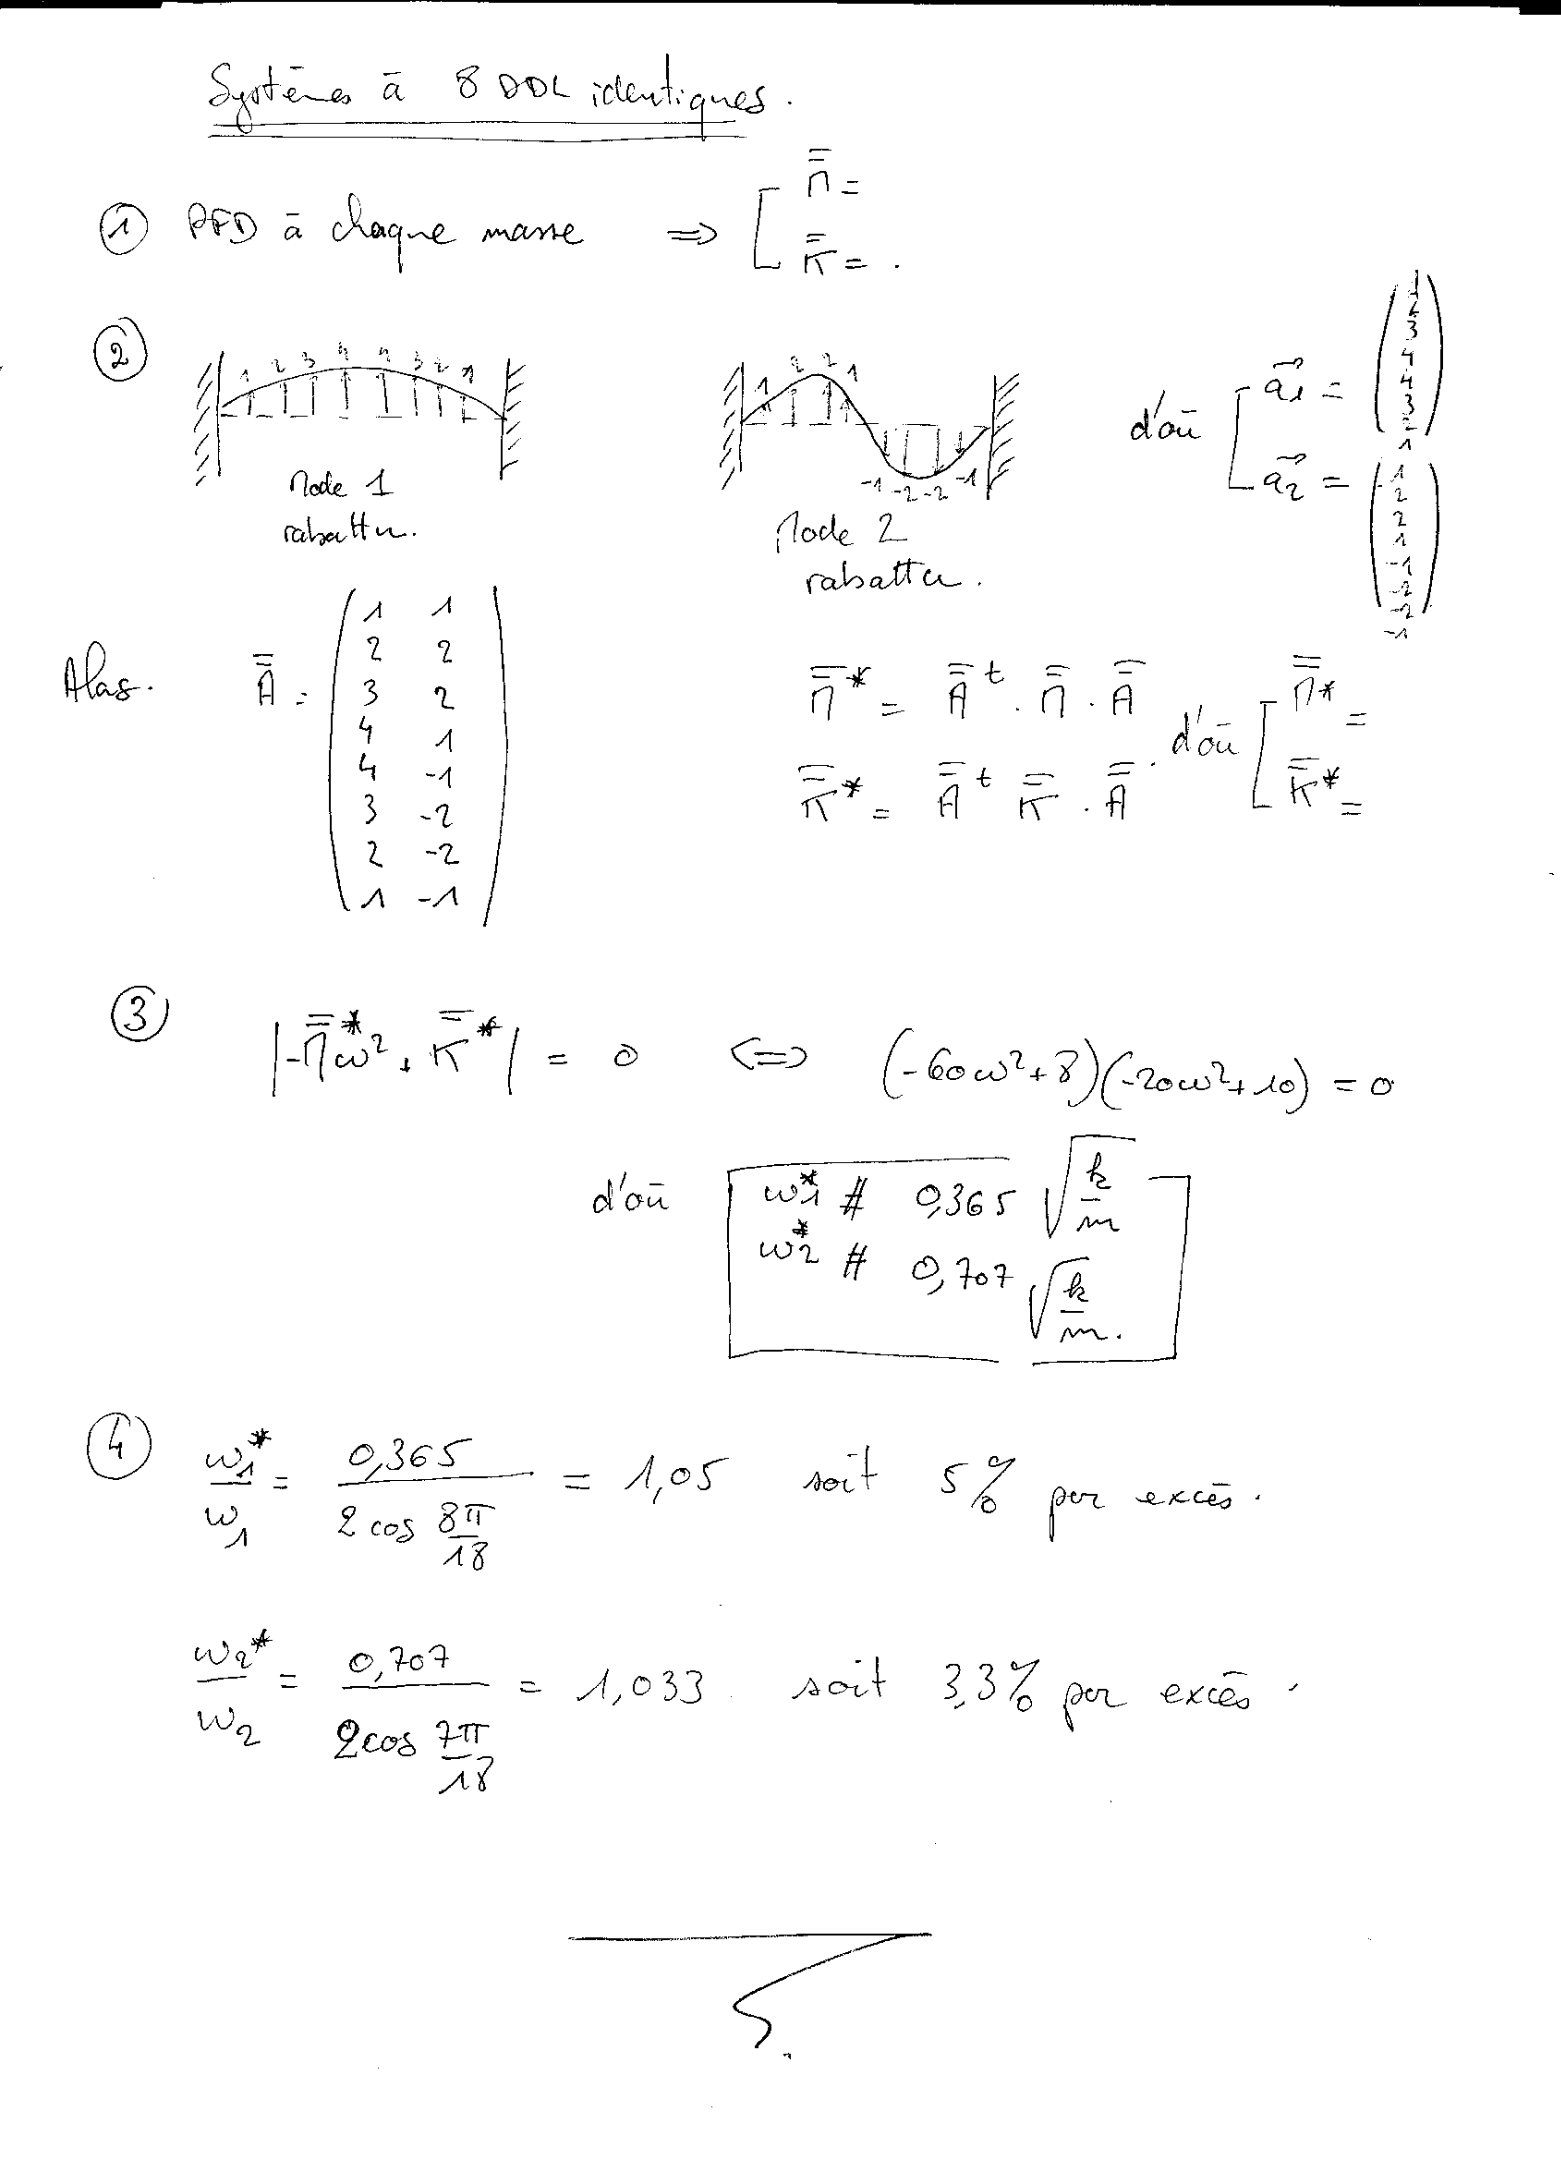 Systèmes à 8 DDL identiques.
① PFD à chaque masse ⇒ [ M̿ =
K̿ = .
②
1 2 3 4 4 3 2 1
Mode 1
rabattu.
1 2 2 1 -1 -2 -2 -1
Mode 2
rabattu.
d'où [ a⃗1 = (1 2 3 4 4 3 2 1)
a⃗2 = (1 2 2 1 -1 -2 -2 -1)
A̿ =
1 1
2 2
3 2
4 1
4 -1
3 -2
2 -2
1 -1
M̿* = A̿ᵗ . M̿ . A̿
K̿* = A̿ᵗ K̿ . A̿ .
d'où [ M̿* =
K̿* =
③ |-M̿*ω² + K̿*| = 0 <=> (-60ω²+8)(-20ω²+10) = 0
d'où ω1* # 0,365 √(k/m)
ω2* # 0,707 √(k/m).
④ ω1*/ω1 = 0,365 / (2 cos 8π/18) = 1,05 soit 5% par excès.
ω2*/ω2 = 0,707 / (2cos 7π/18) = 1,033 soit 3,3% par excès.